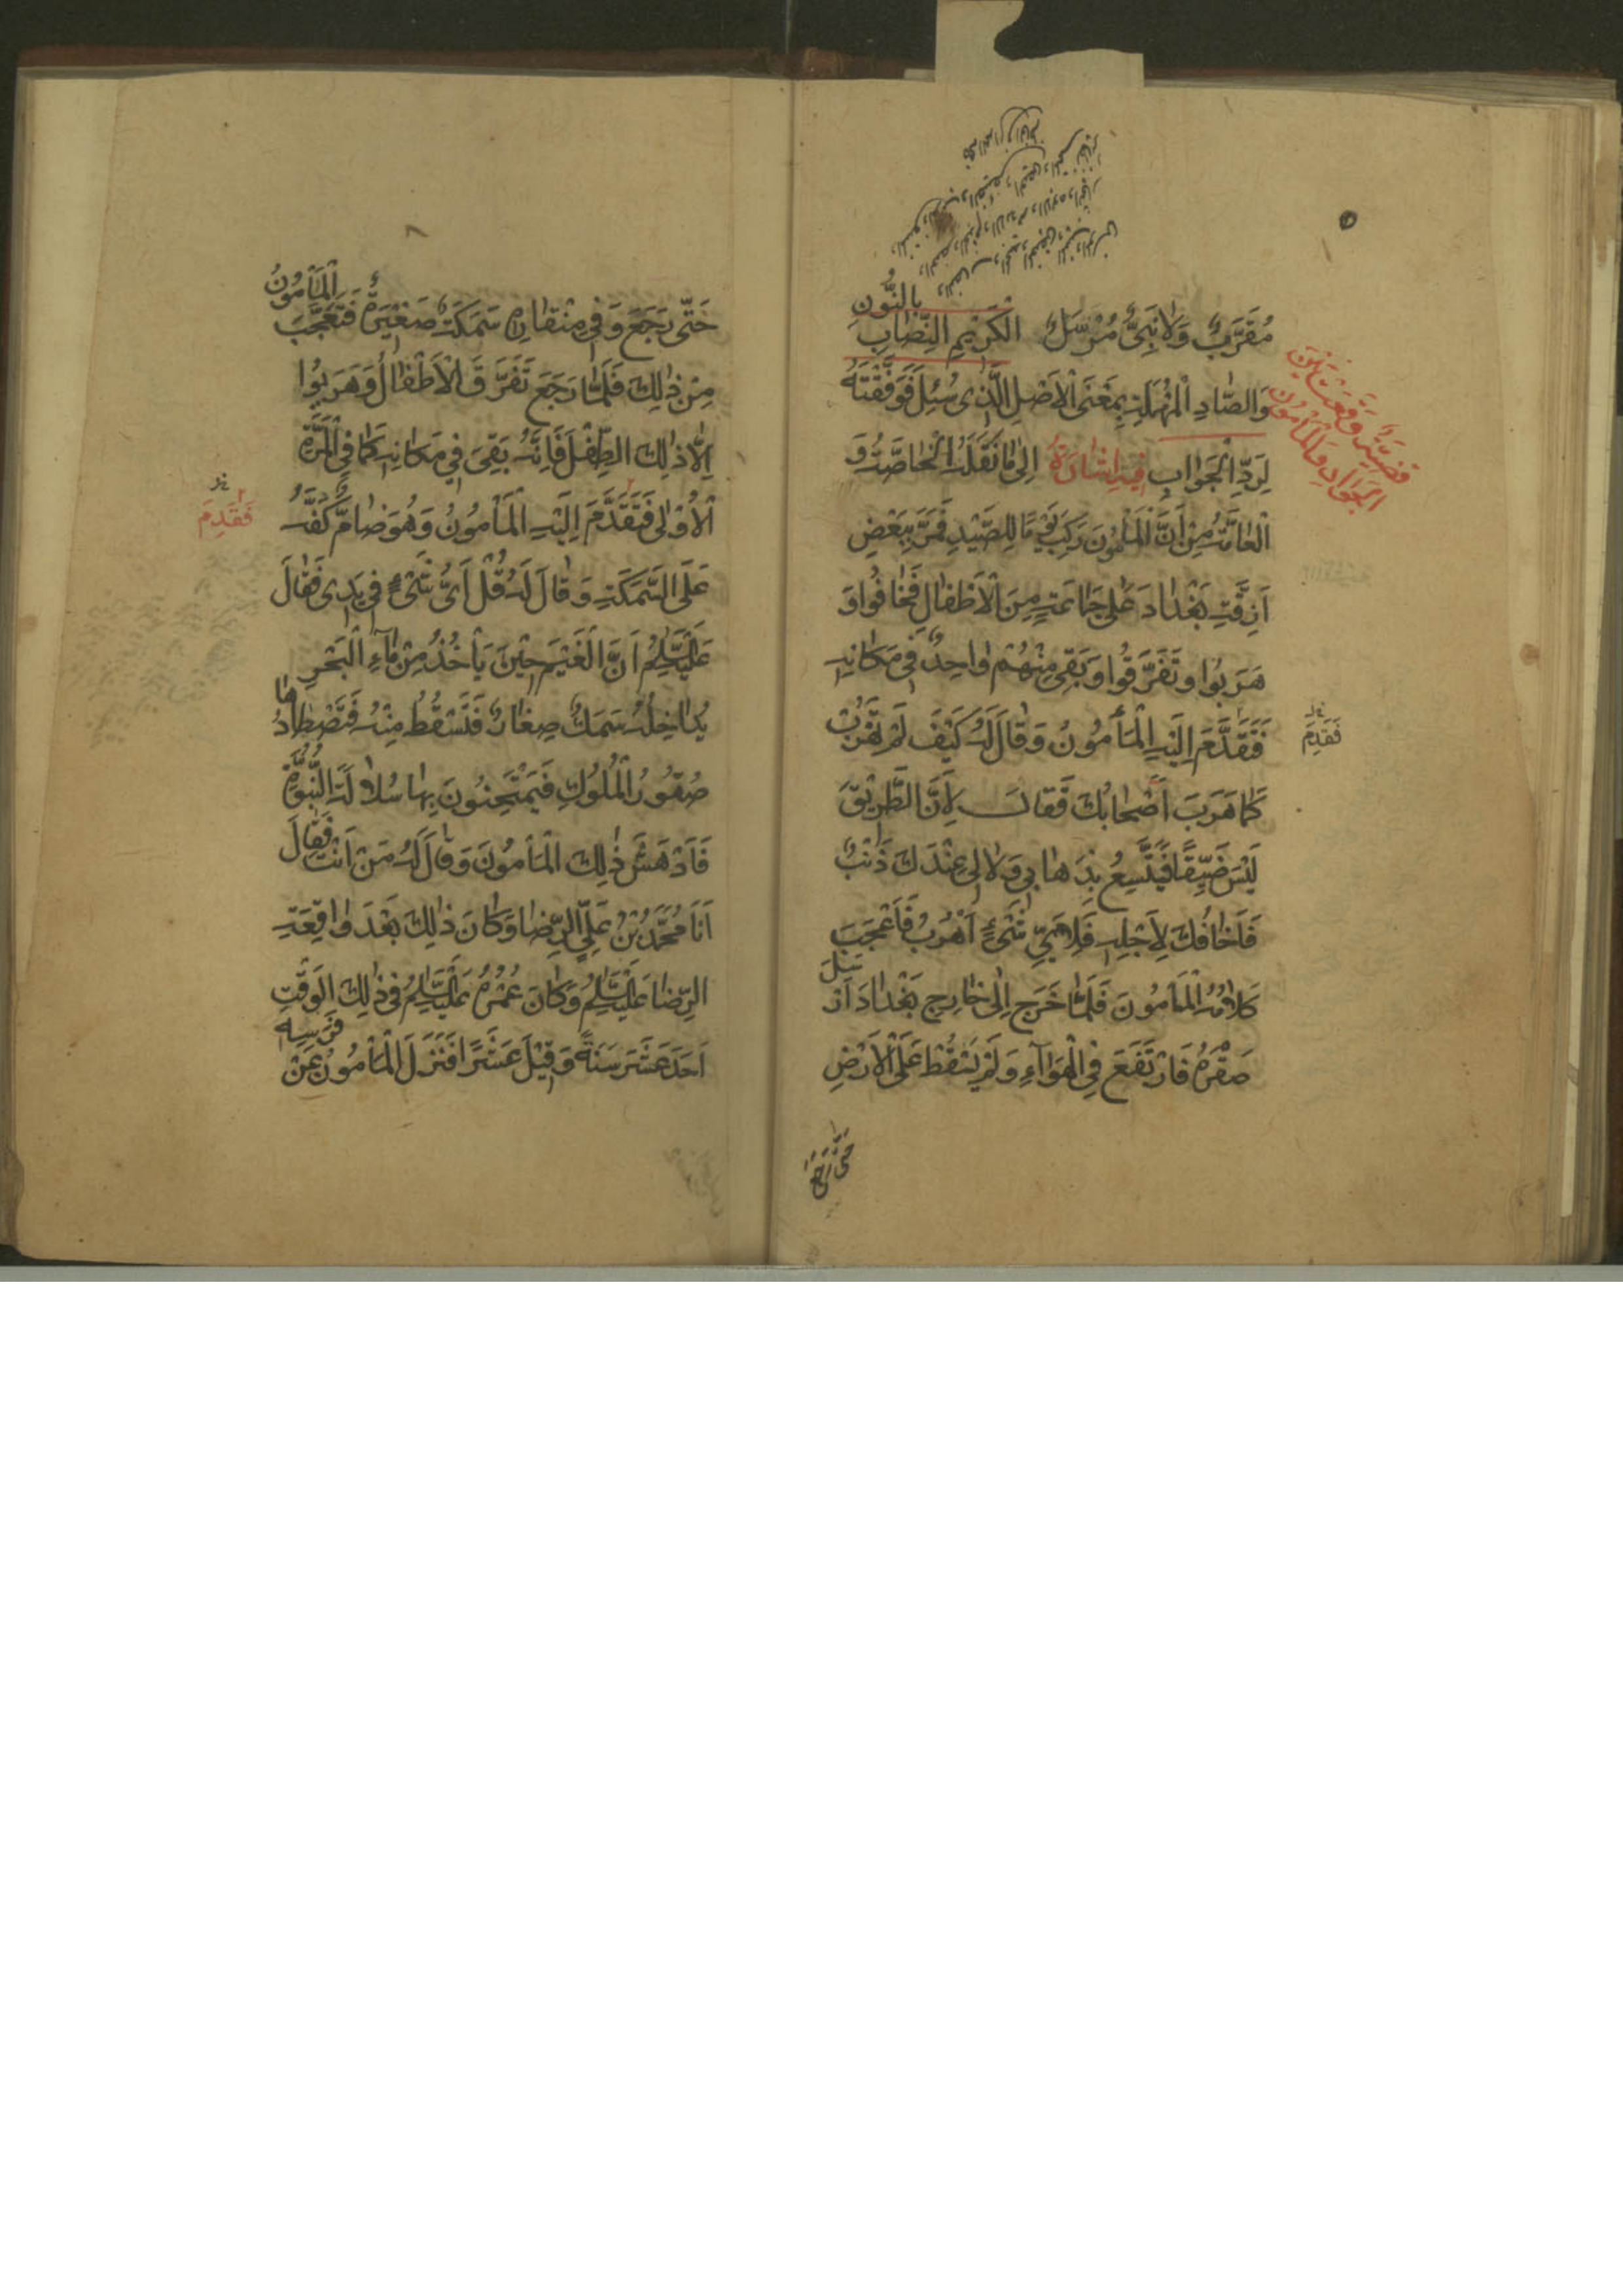 مُقَرَّبٌ وَلَا نَبِيٌّ مُرْسَلٌ الْكَرِيمِ النِّصَابِ بِالنُّونِ
وَالصَّادِ الْمُهْمَلَةِ بِمَعْنَى الْاَصْلِ الَّذِى سُئِلَ فَوَفَّقْتَهُ
لِرَدِّ الْجَوَابِ فِيهِ اِشَارَةٌ اِلٰى مَا نَقَلَتْهُ الْخَاصَّةُ وَ
الْعَامَّةُ مِنْ اَنَّ الْمَأْمُونَ رَكِبَ يَوْمًا لِلصَّيْدِ فَمَرَّ بِبَعْضِ
اَزِقَّةِ بَغْدَادَ عَلٰى جَمَاعَةٍ مِنَ الْاَطْفَالِ فَخَافُوا وَ
هَرَبُوا وَتَفَرَّقُوا وَبَقِىَ مِنْهُمْ وَاحِدٌ فِى مَكَانِهِ
فَتَقَدَّمَ اِلَيْهِ الْمَأْمُونُ وَقَالَ لَهُ كَيْفَ لَمْ تَهْرُبْ
كَمَا هَرَبَ اَصْحَابُكَ فَقَالَ لِاَنَّ الطَّرِيقَ
لَيْسَ ضَيِّقًا فَيَتَّسِعُ بِذَهَابِى وَلَا لِى عِنْدَكَ ذَنْبٌ
فَاَخَافُكَ لِاَجْلِهِ فَلِاَىِّ شَىْءٍ اَهْرُبُ فَاَعْجَبَ
كَلَامُهُ الْمَأْمُونَ فَلَمَّا خَرَجَ اِلٰى خَارِجِ بَغْدَادَ اَرْسَلَ
صَقْرَهُ فَارْتَفَعَ فِى الْهَوَآءِ وَلَمْ يَسْقُطْ عَلَى الْاَرْضِ
حَتَّى رَجَعَ
قَضِيَّةٌ وَقَعَتْ بَيْنَ
الْجَوَادِ وَالْمَأْمُونِ
فَقَدِمَ
حَتّٰى رَجَعَ وَفِى مِنْقَارِهِ سَمَكَةٌ صَغِيرَةٌ فَتَعَجَّبَ الْمَأْمُونُ
مِنْ ذٰلِكَ فَلَمَّا رَجَعَ تَفَرَّقَ الْاَطْفَالُ وَهَرَبُوا
اِلَّا ذٰلِكَ الطِّفْلَ فَاِنَّهُ بَقِىَ فِى مَكَانِهِ كَمَا فِى الْمَرَّةِ
الْاُوْلٰى فَتَقَدَّمَ اِلَيْهِ الْمَأْمُونُ وَهُوَ ضَامٌّ كَفَّهُ
عَلَى السَّمَكَةِ وَقَالَ لَهُ قُلْ اَىُّ شَىْءٍ فِى يَدِى فَقَالَ
عَلَيْهِ السَّلَامُ اَنَّ الْغَيْمَ حِيْنَ يَأْخُذُ مِنْ مَآءِ الْبَحْرِ
يُدَاخِلُهُ سَمَكٌ صِغَارٌ فَتَسْقُطُ مِنْهُ فَتَصْطَادُهَا
صُقُورُ الْمُلُوكِ فَيَمْتَحِنُونَ بِهَا سُلَالَةَ النُّبُوَّةِ
فَاَدْهَشَ ذٰلِكَ الْمَأْمُونَ وَقَالَ لَهُ مَنْ اَنْتَ فَقَالَ
اَنَا مُحَمَّدُ بْنُ عَلِىٍّ الرِّضَا وَكَانَ ذٰلِكَ بَعْدَ وَاقِعَةِ
الرِّضَا عَلَيْهِ السَّلَامُ وَكَانَ عُمْرُهُ عَلَيْهِ السَّلَامُ فِى ذٰلِكَ الْوَقْتِ
اَحَدَ عَشَرَ سَنَةً وَقِيْلَ عَشْرًا فَنَزَلَ الْمَأْمُونُ عَنْ فَرَسِهِ
فَقَدِمَ